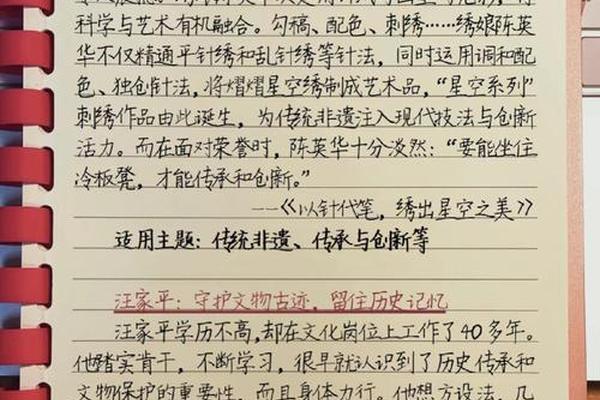 科学与艺术有机融合。勾稿、配色、刺绣……绣娘陈英
华不仅精通平针绣和乱针绣等针法，同时运用调和配
色、独创针法，将熠熠星空绣制成艺术品，“星空系列”
刺绣作品由此诞生，为传统非遗注入现代技法与创新
活力。而在面对荣誉时，陈英华十分淡然：“要能坐住
冷板凳，才能传承和创新。”
——《以针代笔，绣出星空之美》
适用主题：传统非遗、传承与创新等
汪家平：守护文物古迹，留住历史记忆
汪家平学历不高，却在文化岗位上工作了40多年。
他踏实肯干，不断学习，很早就认识到了历史传承和
文物保护的重要性，而且身体力行。他想方设法，几